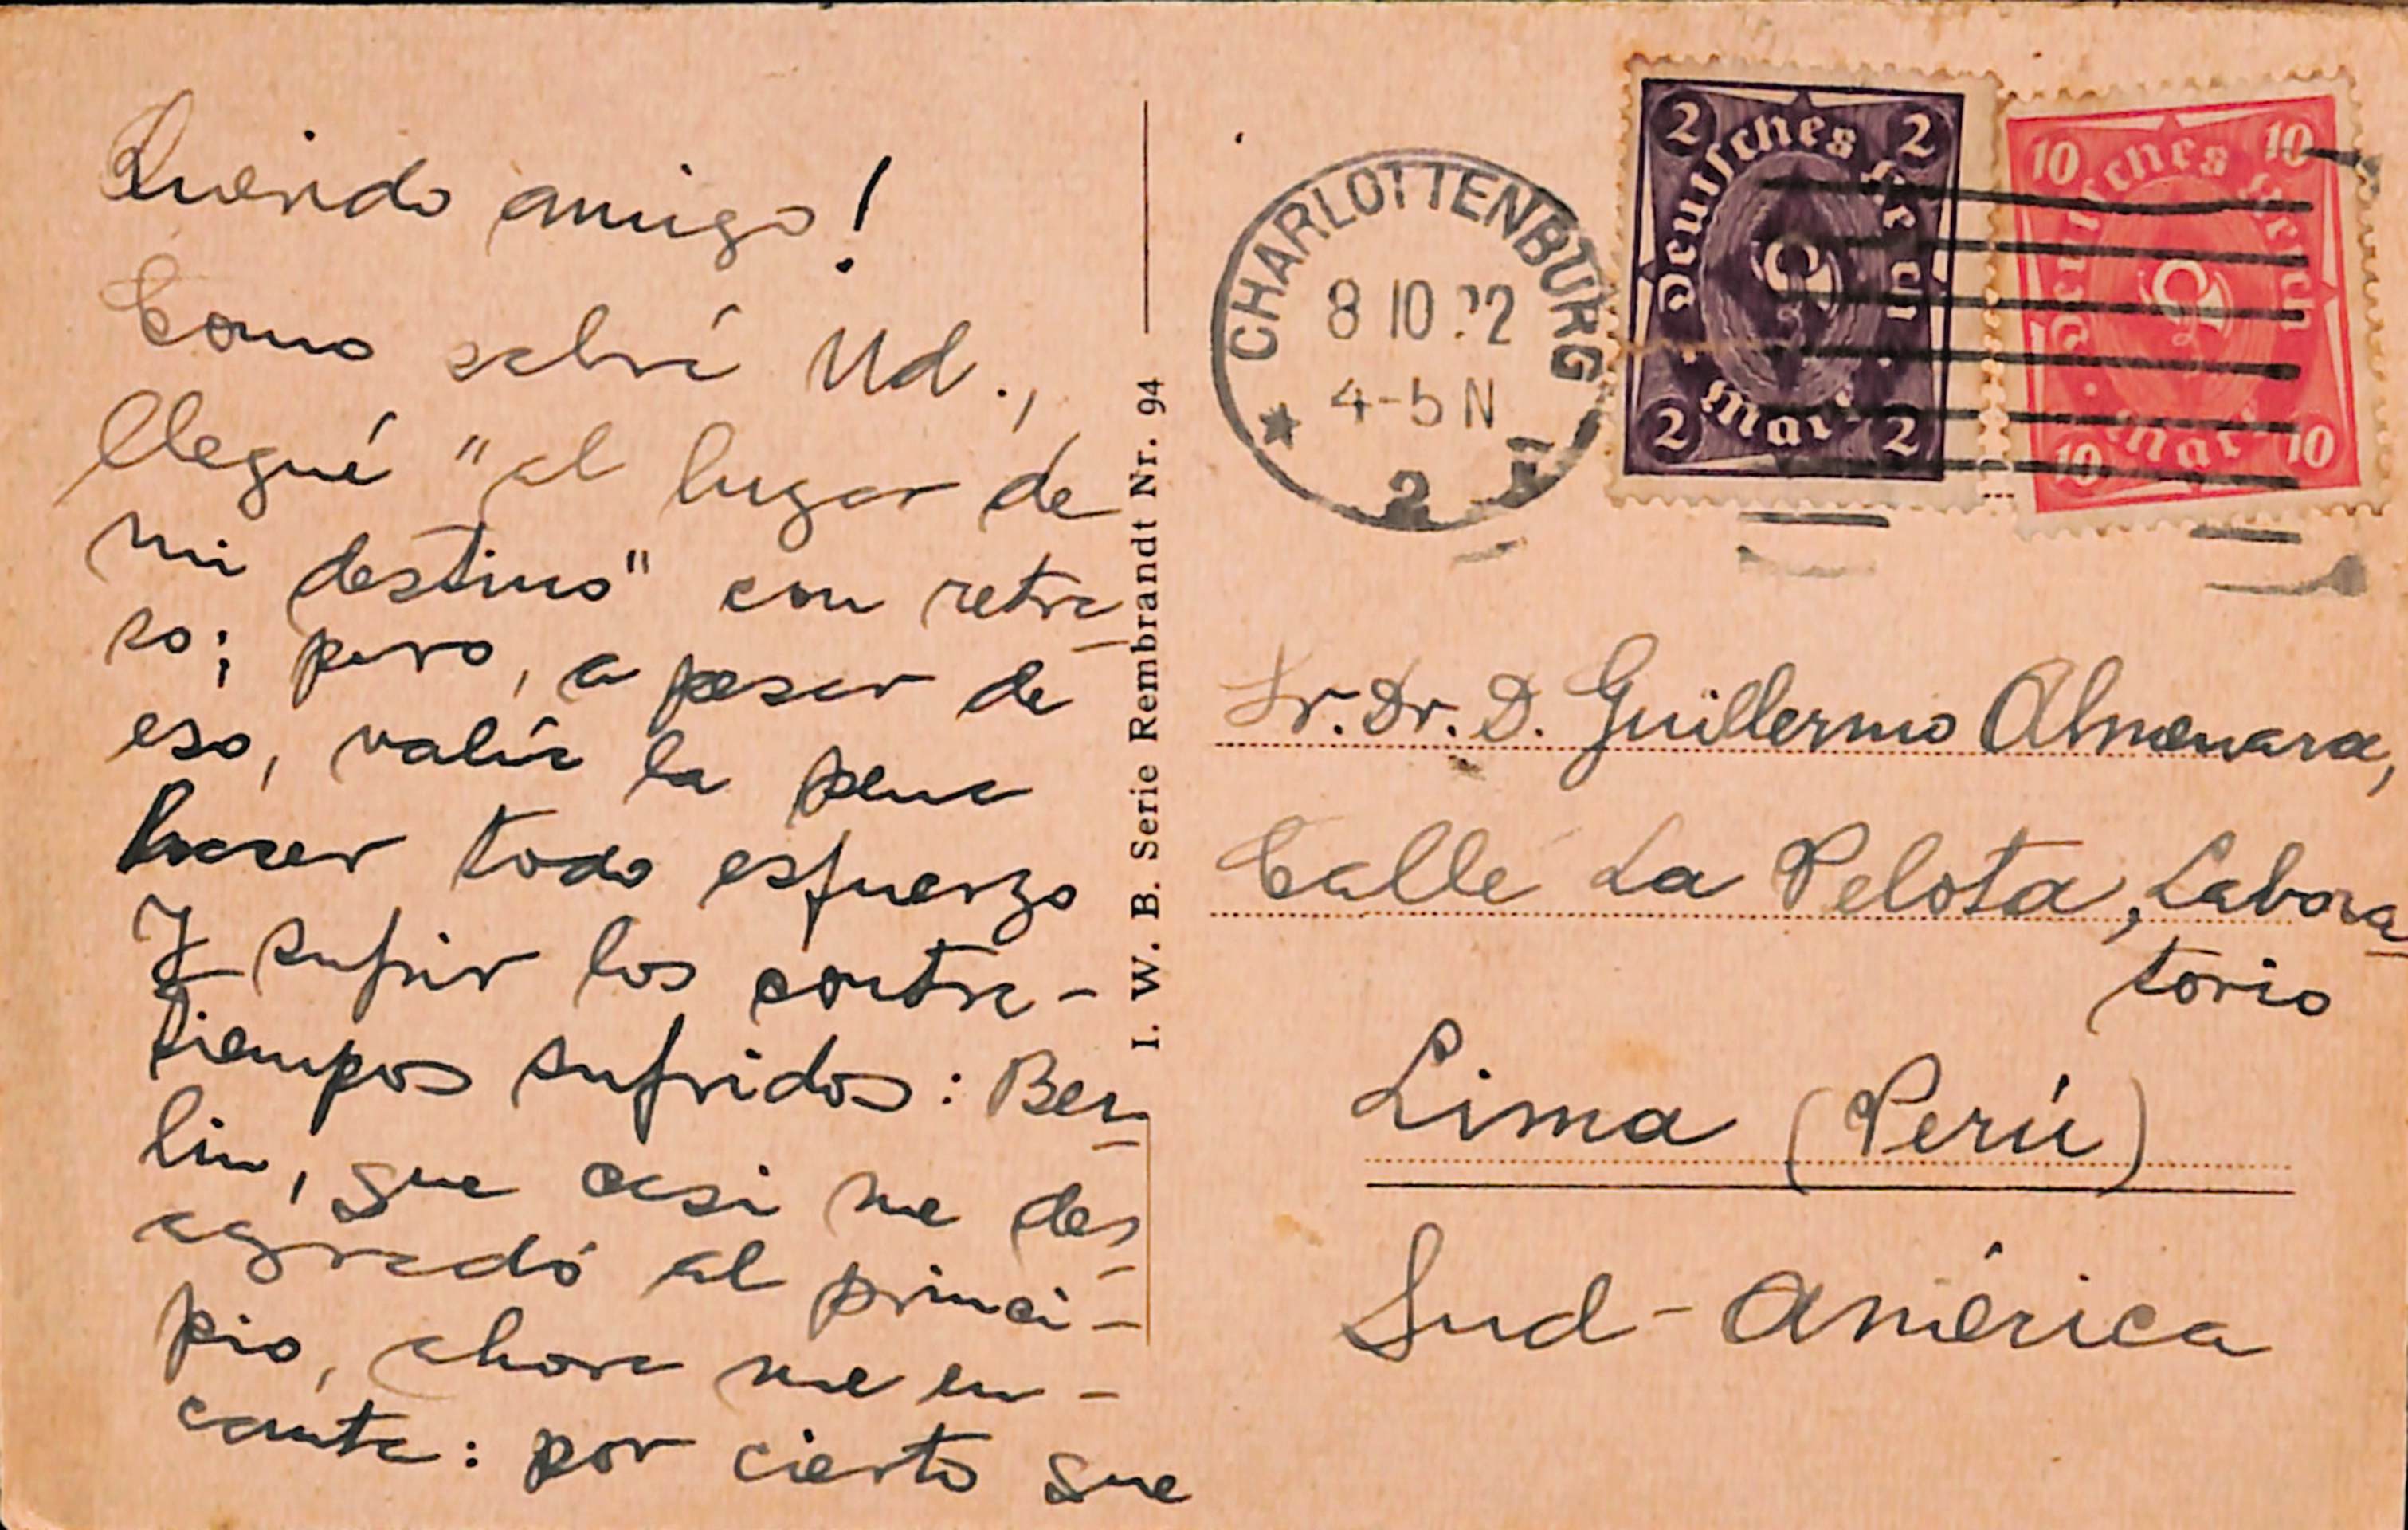 Querido amigo!
Como sabrá Ud.,
llegué "al lugar de
mi destino" con retra-
so; pero, a pesar de
eso, valía la pena
hacer todo esfuerzo
y sufrir los contra-
tiempos sufridos: Ber-
lin, que casi me des-
agradó al princi-
pio, ahora me en-
canta: por cierto que
I. W. B. Serie Rembrandt Nr. 94
CHARLOTTENBURG
8 10 22
4-5 N
2
2 Deutsches Reich 2
2 Mark 2
10 Deutsches Reich 10
10 Mark 10
Sr. Dr. D. Guillermo Almenara,
Calle La Pelota, Labora-
torio
Lima (Perú)
Sud-América